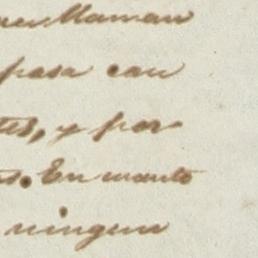 llaman
pasa con
tes, y por
s. En cuanto
ningun